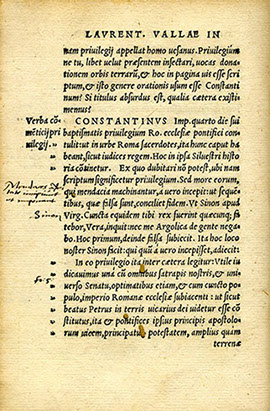 LAVRENT. VALLAE IN
nam priuilegij appellat homo uesanus. Priuilegium
ne tu, libet uelut præsentem insectari, uocas dona
tionem orbis terrarū, & hoc in pagina uis esse scri
ptum, & isto genere orationis usum esse Constanti
num? Si titulus absurdus est, qualia cætera existi
memus?
CONSTANTINVS Imp. quarto die sui
baptismatis priuilegium Ro. ecclesiæ pontifici con
tulit ut in urbe Roma sacerdotes, ita hunc caput ha
beant, sicut iudices regem. Hoc in ipsa Siluestri histo
ria cōtinetur. Ex quo dubitari nō potest, ubi nam
scriptum significetur priuilegium. Sed more eorum,
qui mendacia machinantur, a uero incepit: ut sequen
tibus, quæ falsa sunt, conciliet fidem. Vt Sinon apud
Virg. Cuncta equidem tibi rex fuerint quæcunq; fa
tebor, Vera, inquit: nec me Argolica de gente nega
bo. Hoc primum, deinde falsa subiecit. Ita hoc loco
noster Sinon facit: qui quū a uero incepisset, adiecit:
In eo priuilegio ita inter cætera legitur: Vtile iu
dicauimus unà cū omnibus satrapis nostris, & uni-
uerso Senatu, optimatibus etiam, & cum cuncto po
pulo, imperio Romanæ ecclesiæ subiacenti: ut sicut
beatus Petrus in terris uicarius dei uidetur esse cō
stitutus, ita & pontifices ipsius principis apostolo-
rum uicem, principatus potestatem, amplius quàm
terrenæ
Verba cō
mēticij pri
uilegij.
Sinon.